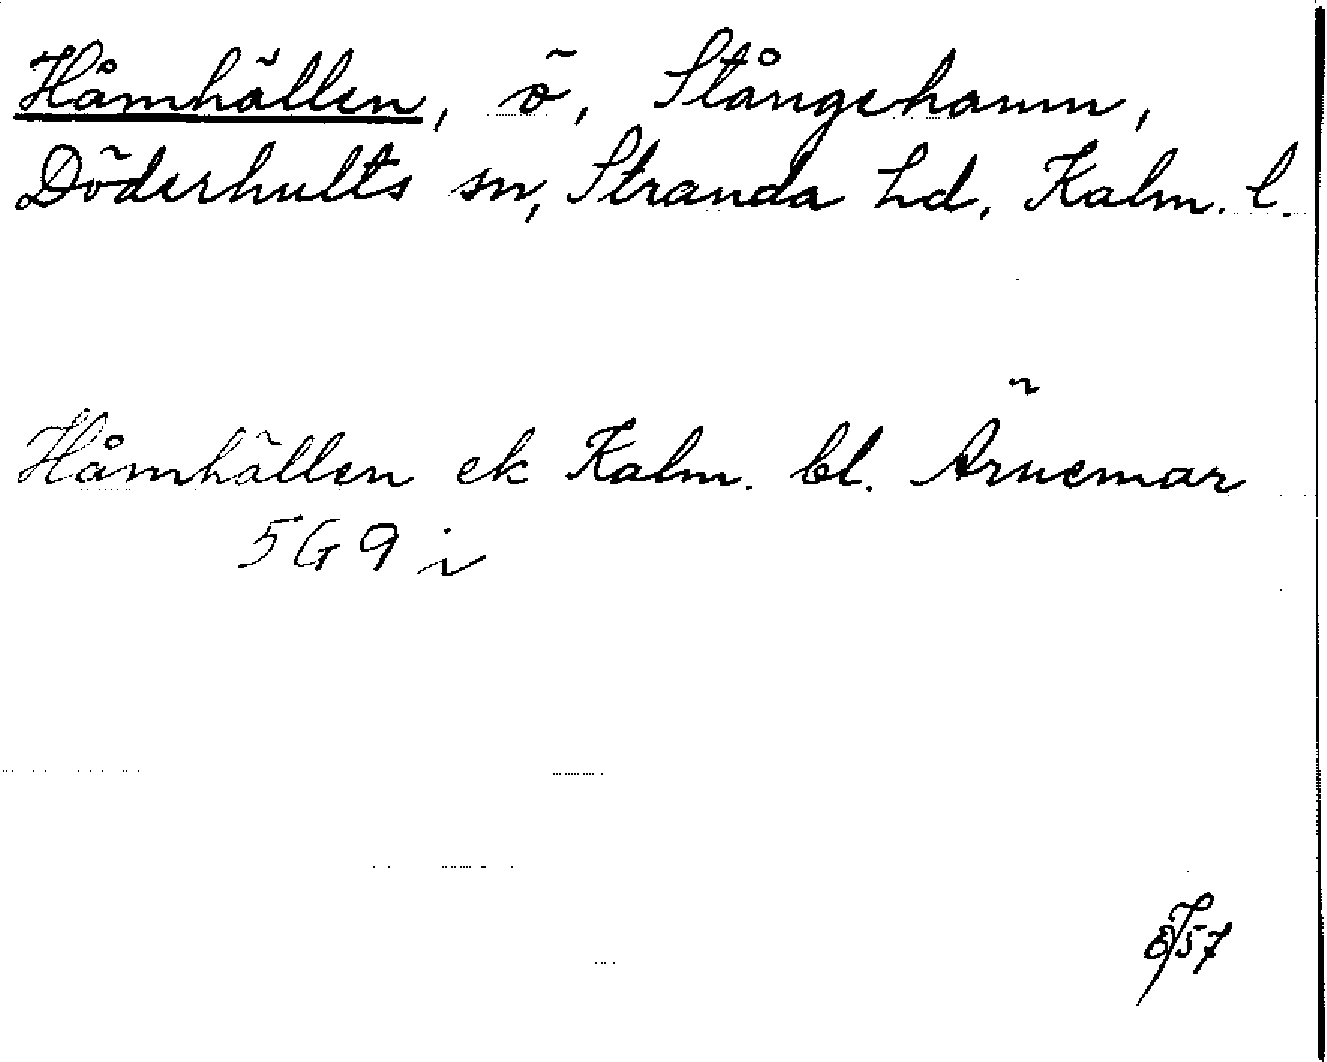 Håmhällen, ö, Stångehamn,
Döderhults sn, Stranda hd, Kalm. l.
Håmhällen ek Kalm. bl. Ärnemar
5G9 i
57